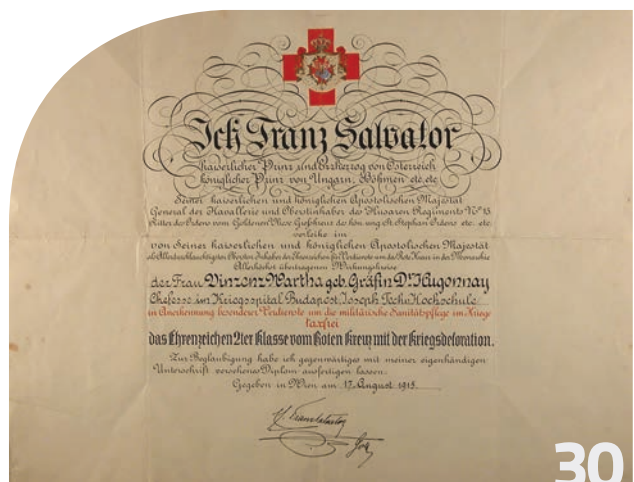 Ich Franz Salvator
kaiserlicher Prinz und Erzherzog von Österreich
königlicher Prinz von Ungarn, Böhmen etc. etc.
Seiner kaiserlichen und königlichen Apostolischen Majestät
General der Kavallerie und Oberstinhaber des Husaren Regiments Nº 15
Ritter des Ordens vom Goldenen Vliese Großkreuz des kön. ung. St. Stephan Ordens etc. etc.
verleihe im
von Seiner kaiserlichen und königlichen Apostolischen Majestät
als Allerdurchlauchtigsten Obersten Inhaber der Ehrenzeichen für Verdienste um das Rote Kreuz in der Monarchie
Allerhöchst übertragenen Wirkungskreise
der Frau Vinzenz Martha geb. Gräfin Dr Hugonnay
Chefesse im Kriegsspital Budapest, Joseph Techn. Hochschule
in Anerkennung besonderer Verdienste um die militärische Sanitätspflege im Kriege
taxfrei
das Ehrenzeichen 2ter Klasse vom Roten Kreuz mit der Kriegsdekoration.
Zur Beglaubigung habe ich gegenwärtiges mit meiner eigenhändigen
Unterschrift versehenes Diplom ausfertigen lassen.
Gegeben in Wien am 17. August 1915.
30